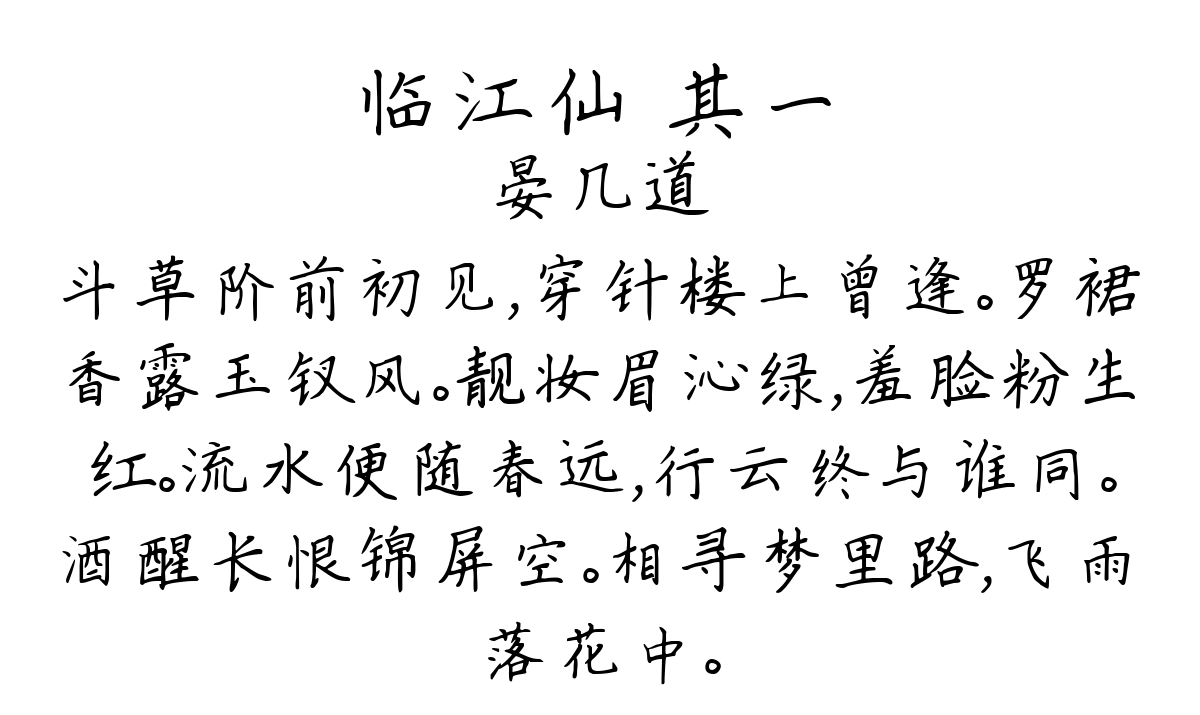 临江仙 其一
晏几道
斗草阶前初见,穿针楼上曾逢。罗裙
香露玉钗风。靓妆眉沁绿,羞脸粉生
红。流水便随春远,行云终与谁同。
酒醒长恨锦屏空。相寻梦里路,飞雨
落花中。